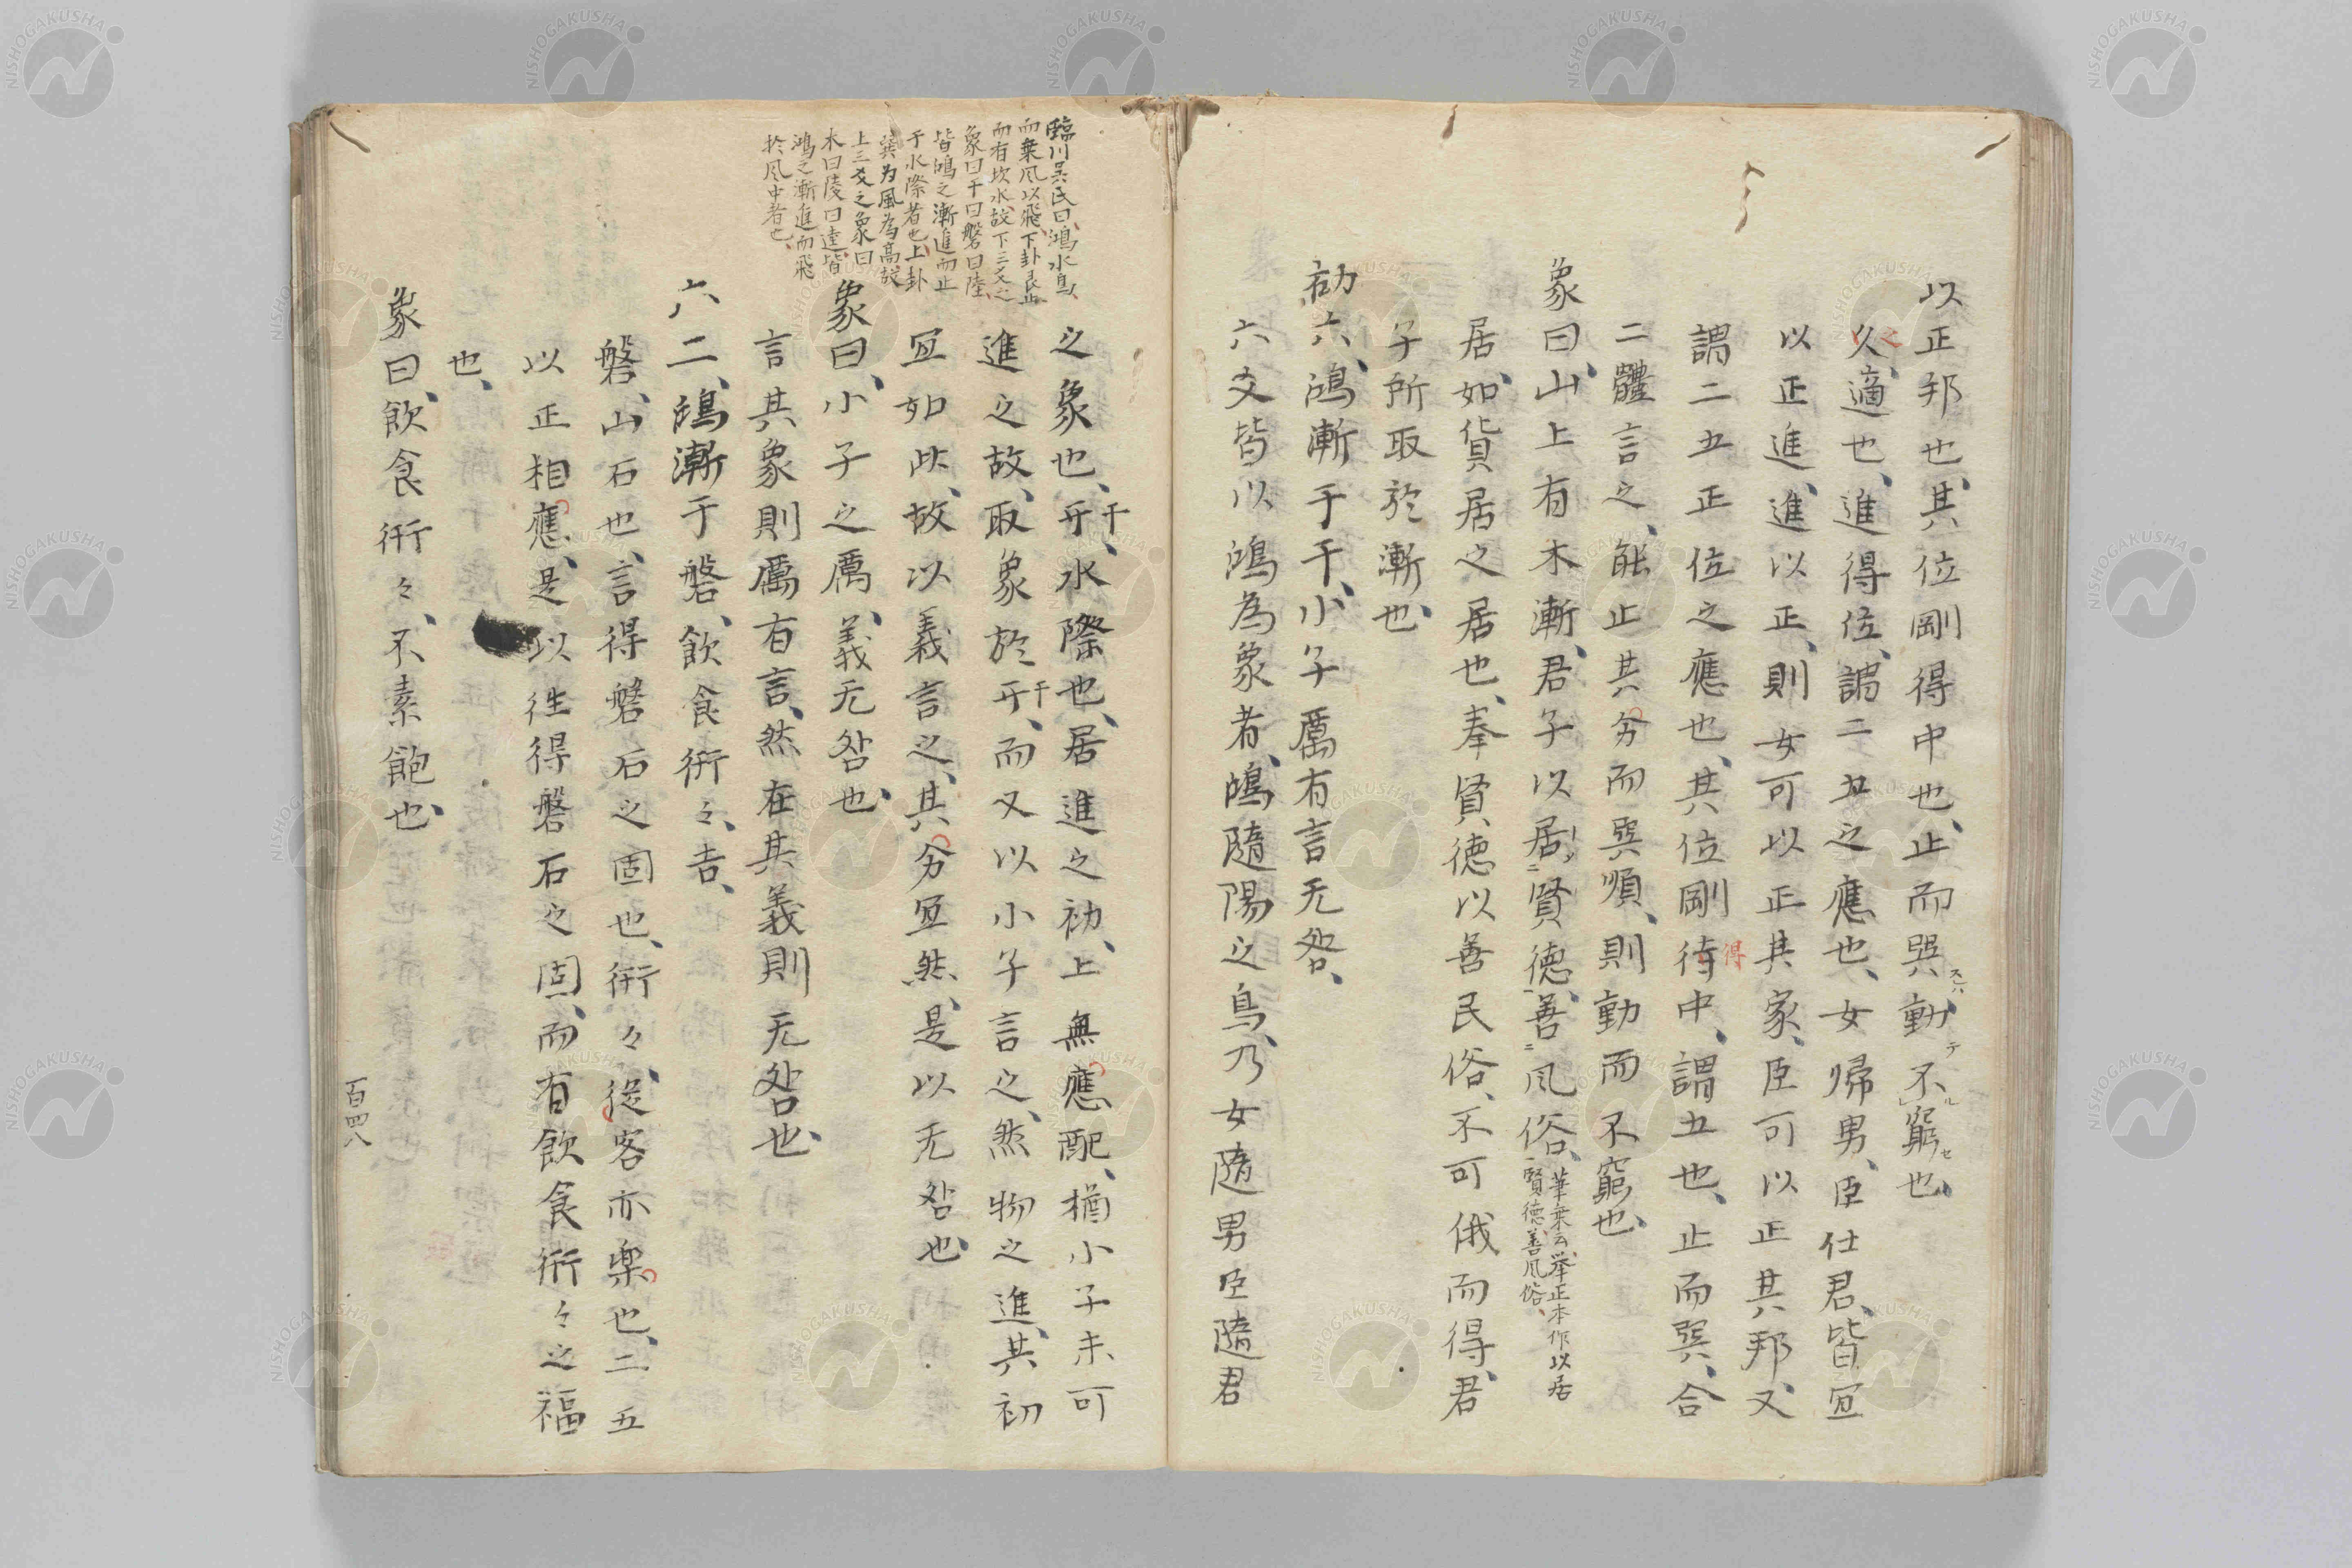 以正邦也、其位剛得中也、止而巽、動不窮也、
久、適也、進得位、謂二五之應也、女歸男、臣仕君、皆冝
之
以正進、進以正、則女可以正其家、臣可以正其邦、又
謂二五正位之應也、其位剛待中、謂五也、止而巽、合
得
二體言之、能止其分而巽順、則動而不窮也、
象曰、山上有木漸、君子以居賢德善風俗、
華葉云、舉正本作以居
賢德善風俗、
居、如貨居之居也、奉賢德以善民俗、不可俄而得、君
子所取於漸也、
初六、鴻漸于干、小子厲有言无咎、
六爻皆以鴻為象者、鴻隨陽之鳥、乃女隨男臣隨君
臨川吴氏曰、鴻水鳥、
而乗風以飛、下卦艮止
而有坎水、故下三爻之
象曰干曰磐曰陸、
皆鴻之漸進而止
于水際者也、上卦
巽为風為高、故
上三爻之象曰
木曰陵曰逵、皆
鴻之漸進而飛
於風中者也、
之象也、干、水際也、居進之初、上無應配、猶小子未可
干
進之故、取象於干、而又以小子言之、然物之進、其初
干
冝如此、故以義言之、其分冝然、是以无咎也、
象曰、小子之厲、義无咎也、
言其象則厲有言、然在其義則无咎也、
六二、鴻漸于磐、飲食衎々、吉、
磐、山石也、言得磐石之固也、衎々、從容亦楽也、二五
以正相應、是以徃得磐石之固、而有飲食衎々之福
也、
象曰、飲食衎々、不素飽也、
百四八